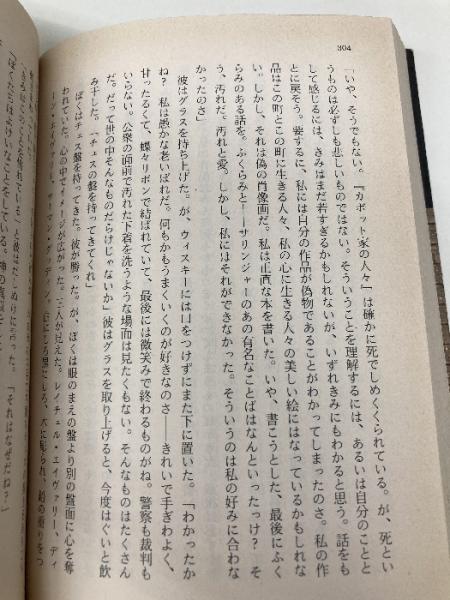 304
「いや、そうでもない。『カボット家の人々』は確かに死でしめくくられている。が、死とい
うものは必ずしも悲しいものではない。そういうことを理解するには、あるいは自分のことと
して感じるには、きみはまだ若すぎるかもしれないが、いずれきみにもわかると思う。話をも
とに戻そう。要するに、私には自分の作品が偽物であることがわかってしまったのさ。私の作
品はこの町とこの町に生きる人々、私の心に生きる人々の美しい絵にはなっているかもしれな
い。しかし、それは偽の肖像画だ。私は正直な本を書いた。いや、書こうとした、最後にふく
らみのある話を。ふくらみと――サリンジャーのあの有名なことばはなんといったっけ? そ
う、汚れだ、汚れと愛。しかし、私にはそれができなかった。そういうのは私の好みに合わな
かったのさ」
彼はグラスを持ち上げた。が、ウィスキーには口をつけずにまた下に置いた。「わかったか
ね? 私は愚かな老いぼれだ。何もかもうまくいくのが好きなのさ――きれいで手ぎわよく、
甘ったるくて、蝶々リボンで結ばれていて、最後には微笑みで終わるものがね。警察も裁判も
いらない。公衆の面前で汚れた下着を洗うような場面は見たくもない。そんなものはたくさん
だ。だって世の中そんなものだらけじゃないか」彼はグラスを取り上げると、今度はぐいと飲
み干した。「チェスの盤を持ってきてくれ」
ぼくはチェス盤を持ってきた。彼が勝った。が、ぼくは眼のまえの盤より別の盤面に心を奪
われていた。心の中でイメージが広がった。三人が見えた。レイチェル・エヴァリー、ディ